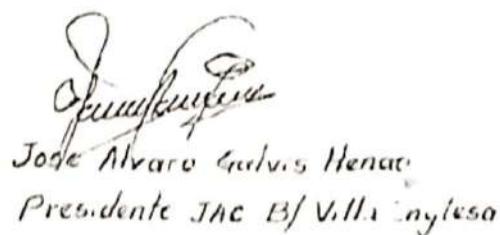 Jose Alvaro Galvis Henao
Presidente JAC B/ Villa Inglesa